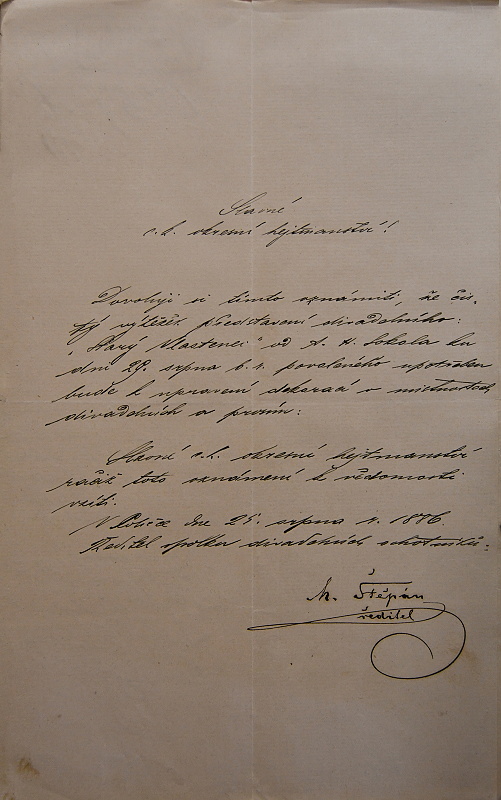 Slavné
c.k. okresní hejtmanství!
Dovoluji si tímto oznámiti, že čis-
tý výtěžek představení divadelního:
"Starý Vlastenec" od A. N. Sokola ku
dni 29. srpna t. r. povoleného upotřeben
bude k upravení dekorací v místnostech
divadelních a prosím:
Slavné c.k. okresní hejtmanství
račiž toto oznámení k vědomosti
vzíti.
V dne 25. srpna r. 1886.
Ředitel spolku divadelních ochotníků:
M. Štěpán
ředitel